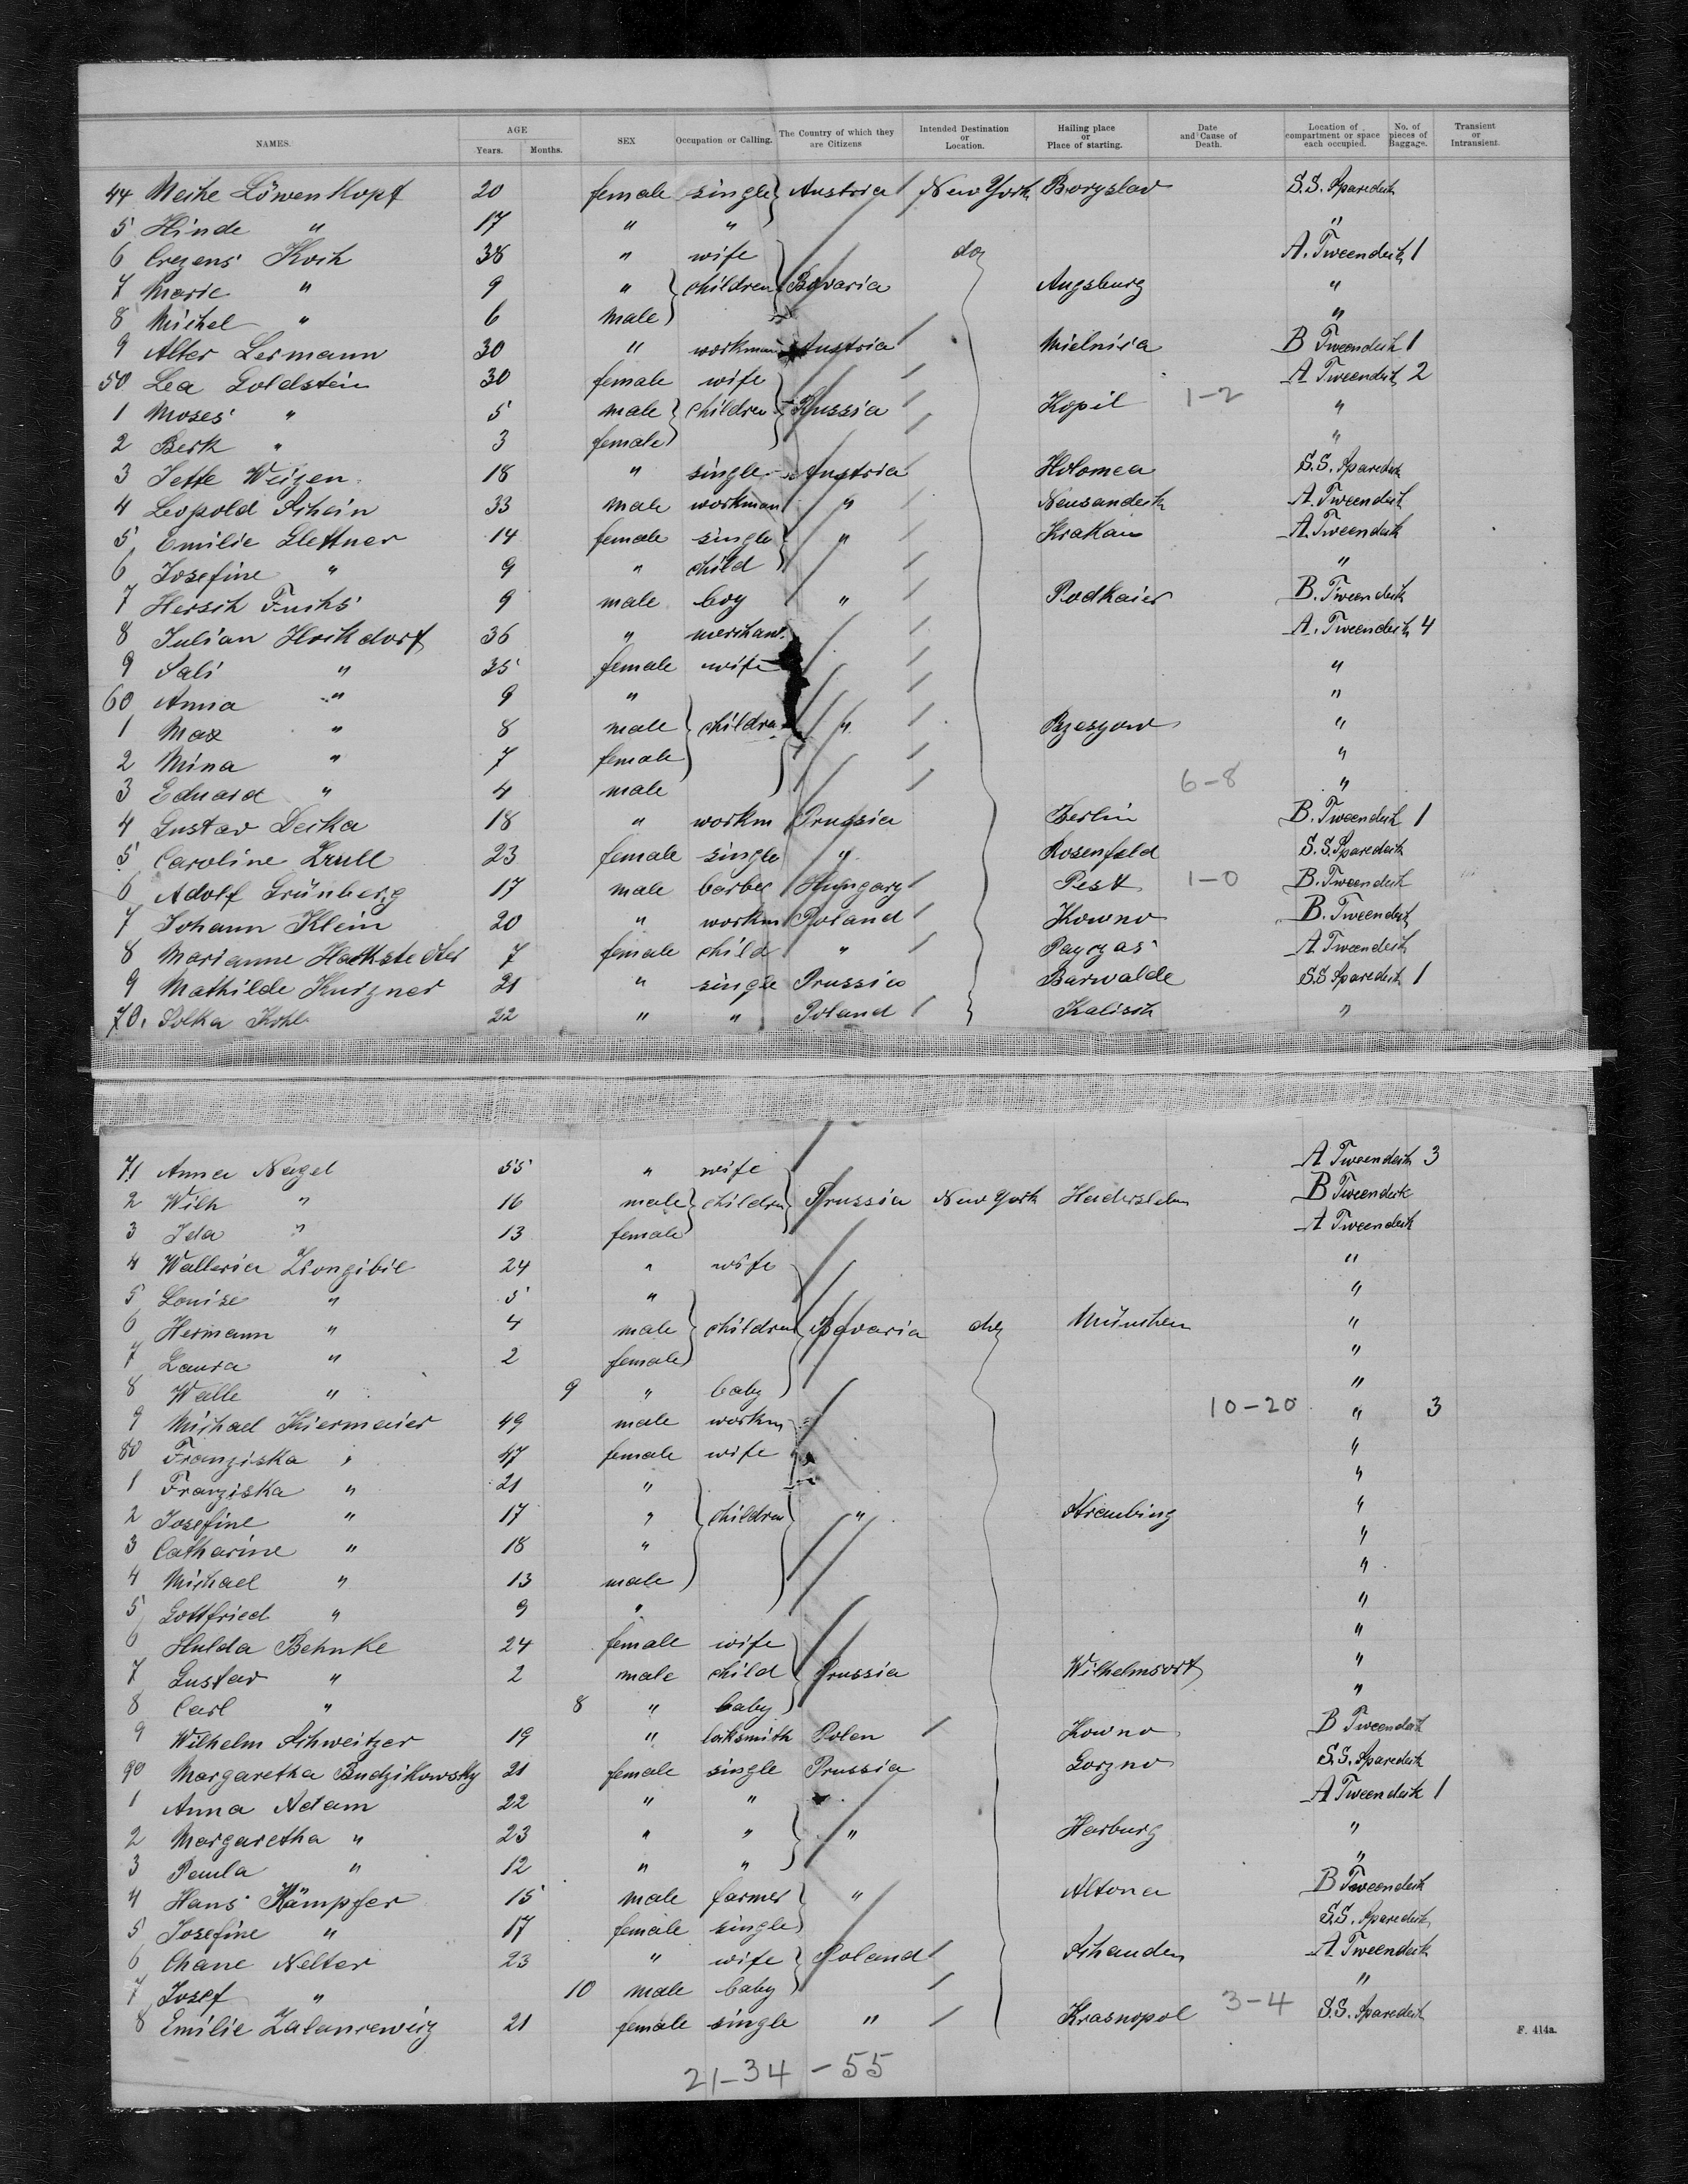 NAMES. AGE Years. Months. SEX Occupation or Calling. The Country of which they are Citizens Intended Destination or Location. Hailing place or Place of starting. Date and Cause of Death. Location of compartment or space each occupied. No. of pieces of Baggage. Transient or Intransient.
44 Meihe Löwenkopf 20 female single Austria New York Boryslav S.S. Sparedeck
5 Hinde " 17 " " "
6 Crezens Koch 38 " wife do A. Tweendeck 1
7 Marie " 9 " children Bavaria Augsburg "
8 Michel " 6 male "
9 Alter Lermann 30 " workman Austria Mielnica B Tweendeck 1
50 Lea Goldstein 30 female wife A Tweendeck 2
1 Moses " 5 male children Russia Kopil 1-2 "
2 Berk " 3 female "
3 Jette Weizen 18 " single Austria Kolomea S.S. Sparedeck
4 Leopold Schein 33 male workman " Neusandeck A. Tweendeck
5 Emilie Stettner 14 female single " Krakau A. Tweendeck
6 Josefine " 9 " child "
7 Hersch Fuchs 9 male boy " Podkaier B. Tweendeck
8 Julian Hochdorf 36 " merchan. A. Tweendeck 4
9 Sali " 35 female wife "
60 Anna " 9 " "
1 Max " 8 male children " Rzeszow "
2 Mina " 7 female "
3 Eduard " 4 male 6-8 "
4 Gustav Decka 18 " workm Prussia Berlin B. Tweendeck 1
5 Caroline Krull 23 female single " Rosenfeld S.S. Sparedeck
6 Adolf Grünberg 17 male barber Hungary Pest 1-0 B. Tweendeck
7 Johann Klein 20 " workm Poland Kowno B. Tweendeck
8 Marianne 7 female child " A Tweendeck
9 Mathilde Kurzner 21 " single Prussia Barwalde S.S Sparedeck 1
70. Solka Kohl 22 " " Poland Kalisch "
71 Anna Nagel 55 " wife A Tweendeck 3
2 Wilh " 16 male children Prussia New York Hadersleben B Tweendeck
3 Ida " 13 female A Tweendeck
4 Walleria 24 " wife "
5 Louise " 5 " "
6 Hermann " 4 male children Bavaria do München "
7 Laura " 2 female "
8 Walle " 9 " baby "
9 Michael Kiermaier 49 male workm 10-20 " 3
80 Franziska " 47 female wife "
1 Franziska " 21 " "
2 Josefine " 17 " children " Straubing "
3 Catharine " 18 " "
4 Michael " 13 male "
5 Gottfried " 9 " "
6 Hulda Behnke 24 female wife "
7 Gustav " 2 male child Prussia Wilhelmsort "
8 Carl " 8 " baby "
9 Wilhelm Schweitzer 19 " locksmith Polen Kowno B Tweendeck
90 Margaretha Budzikowsky 21 female single Prussia Gorzno S.S. Sparedeck
1 Anna Adam 22 " " A Tweendeck 1
2 Margaretha " 23 " " " Harburg "
3 Paula " 12 " " "
4 Hans Kämpfer 15 male farmer " Altona B Tweendeck
5 Josefine " 17 female single S.S. Sparedeck
6 Chane Nelter 23 " wife Poland Schauden A Tweendeck
7 Josef " 10 male baby "
8 Emilie 21 female single " Krasnopol 3-4 S.S. Sparedeck
F. 414a.
21-34-55